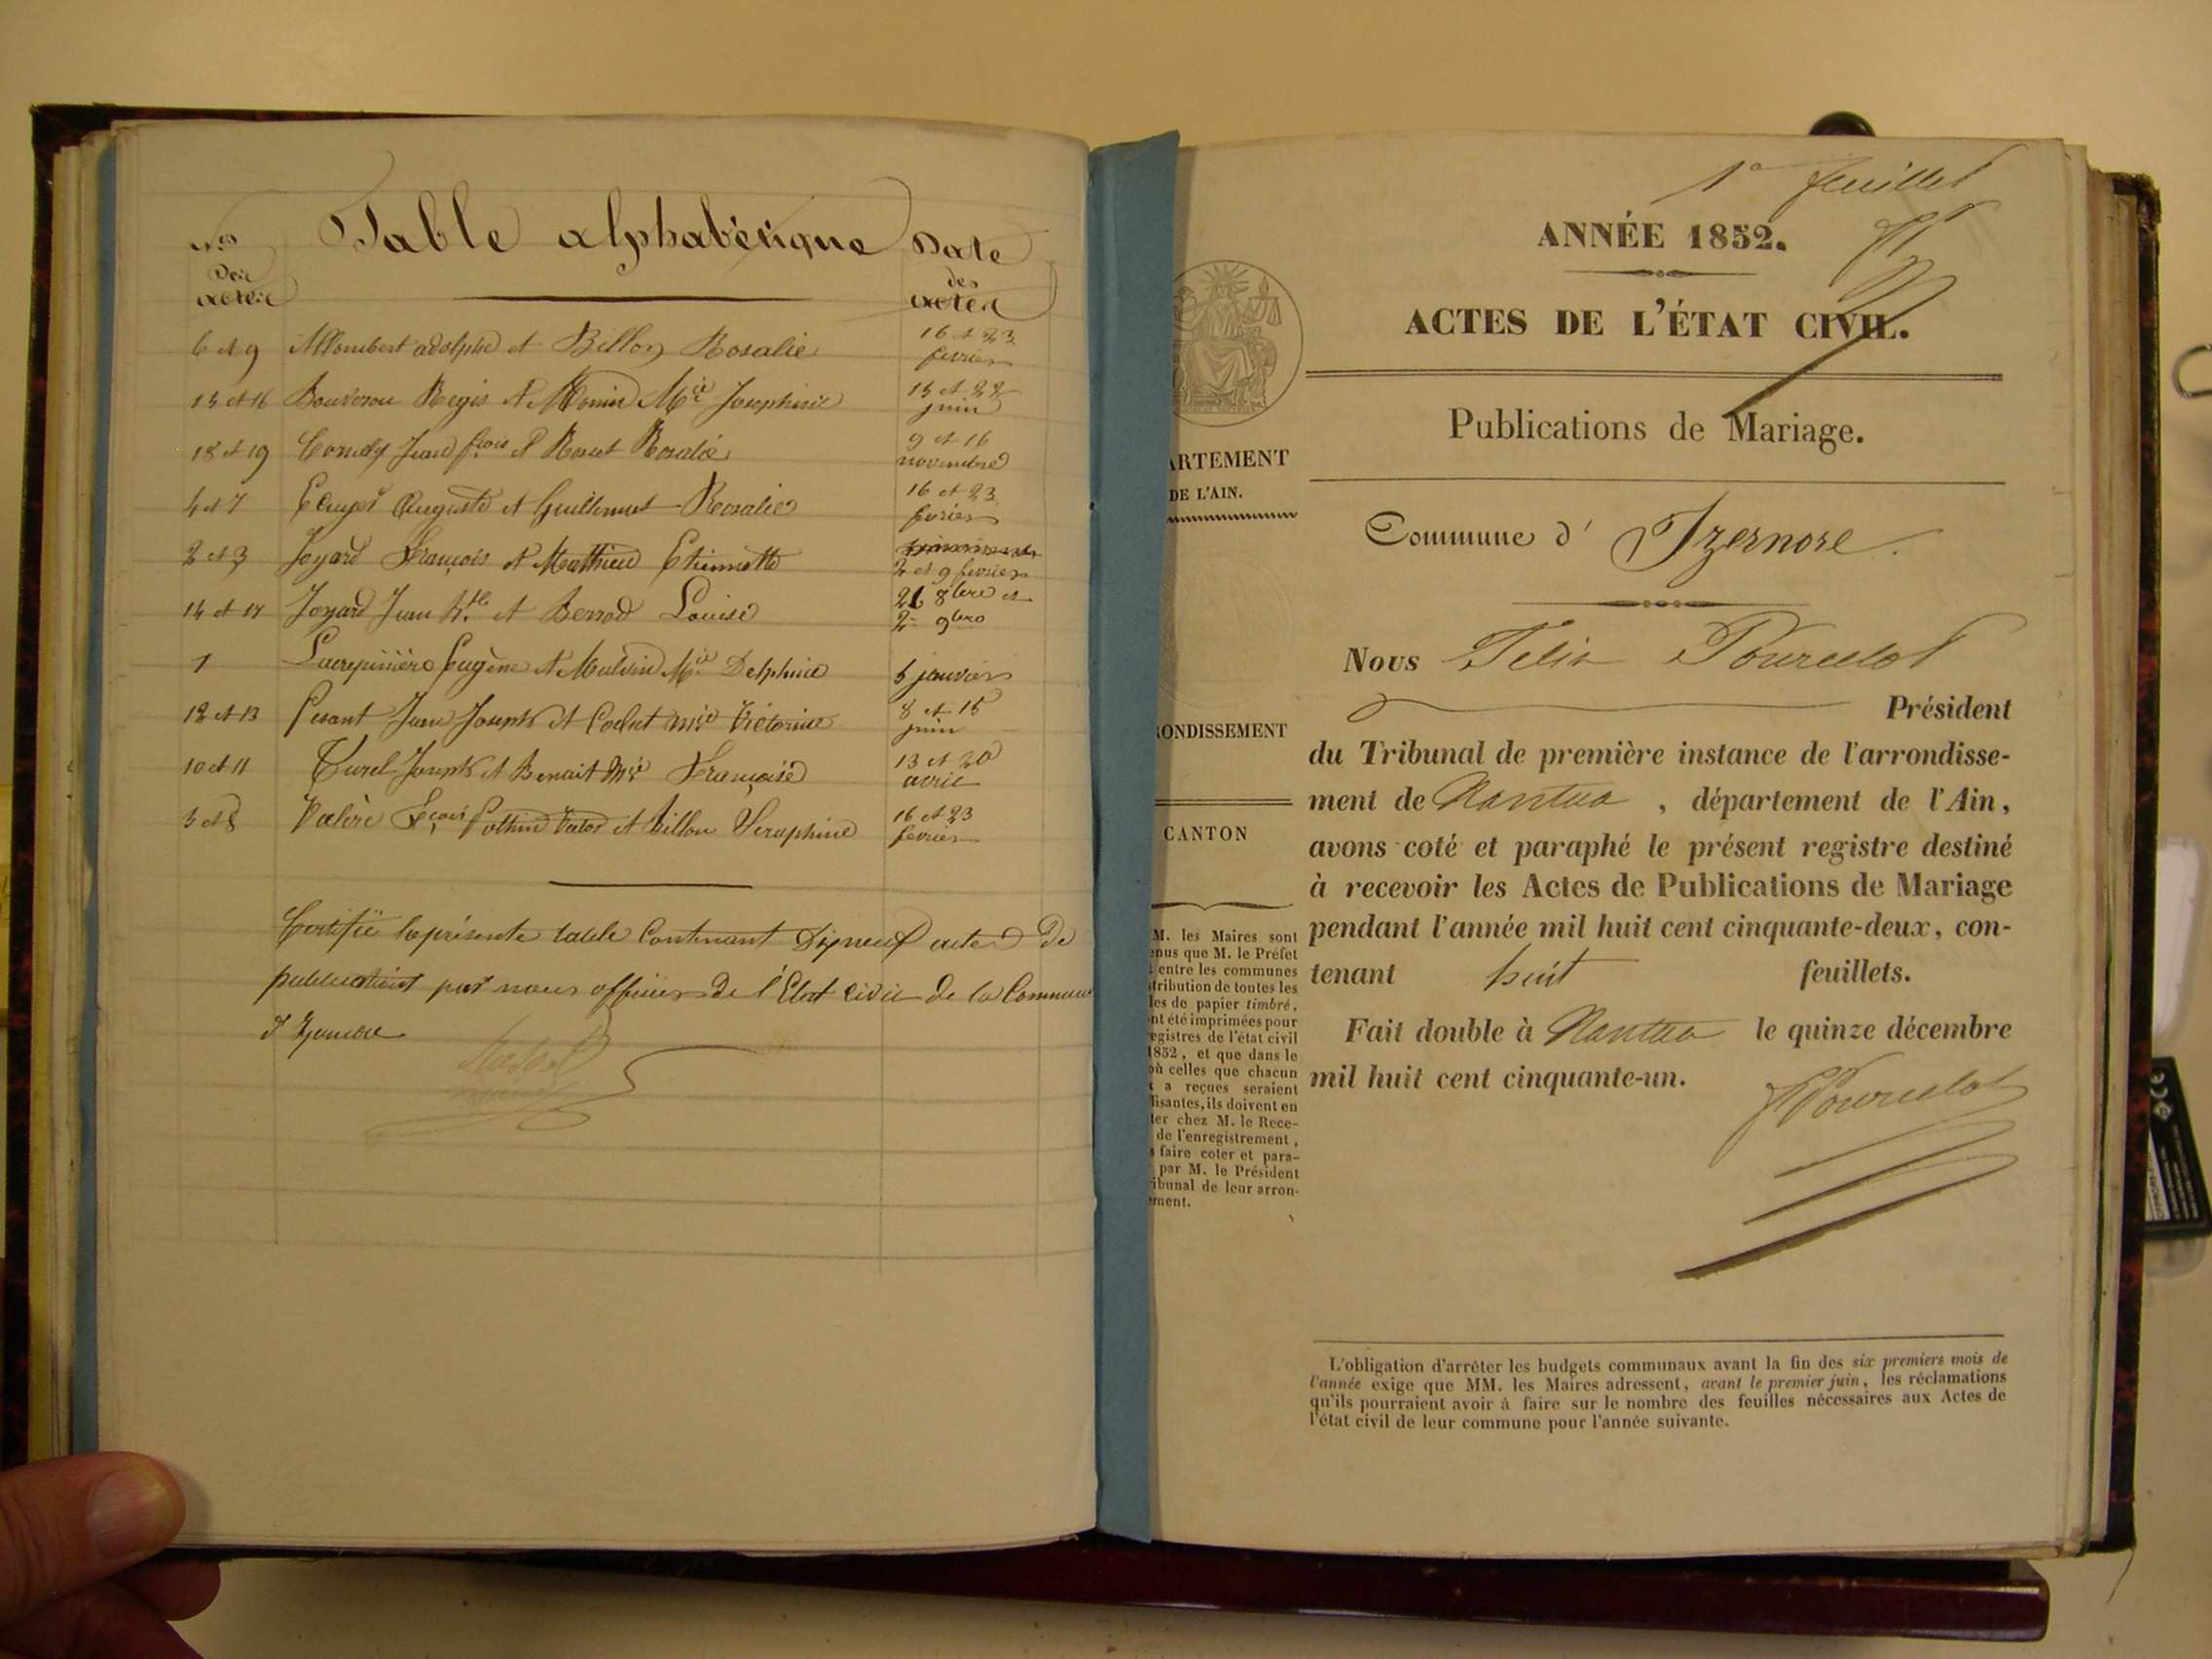 Nos
Des
actes
Table alphabétique
Date
des
actes
6 et 9 Allombert adolphe et Billon Rosalie 16 et 23
fevrier
15 et 16 Bouveron Regis et Monin Mie Josephine 15 et 22
juin
18 et 19 Jean fcois et Rosset Rosalie 9 et 16
novembre
4 et 7 Auguste et Guillemot Rosalie 16 et 23
fevrier
2 et 3 Joyard François et Matthieu Etiennette
2 et 9 fevrier
14 et 17 Joyard Jean Bte et Berrod Louise 26 8bre et
2 9bre
1 Eugène et Mie Delphine 5 janvier
12 et 13 Jean Joseph et Cochet Mie Victorine 8 et 15
juin
10 et 11 Turel Joseph et Benoit Mie Françoise 13 et 20
avril
5 et 8 Valère Fcois et Billon Seraphine 16 et 23
fevrier
Certifié la présente table Contenant Dixneuf actes de
publications par nous officier de l'Etat civil de la Commune
d'Izernore
1er feuillet
ANNÉE 1852.
ACTES DE L'ÉTAT CIVIL.
Publications de Mariage.
ARTEMENT
DE L'AIN.
Commune d' Izernore.
Nous Felix Pourcelot
Président
ONDISSEMENT
du Tribunal de première instance de l'arrondisse-
ment de Nantua , département de l'Ain,
CANTON
avons coté et paraphé le présent registre destiné
à recevoir les Actes de Publications de Mariage
pendant l'année mil huit cent cinquante-deux, con-
tenant huit feuillets.
Fait double à Nantua le quinze décembre
mil huit cent cinquante-un.
FPourcelot
M. les Maires sont
enus que M. le Préfet
entre les communes
tribution de toutes les
les de papier timbré,
nt été imprimées pour
egistres de l'état civil
1852, et que dans le
où celles que chacun
a reçues seraient
fisantes, ils doivent en
ter chez M. le Rece-
de l'enregistrement,
faire coter et para-
par M. le Président
ribunal de leur arron-
ement.
L'obligation d'arrêter les budgets communaux avant la fin des six premiers mois de
l'année exige que MM. les Maires adressent, avant le premier juin, les réclamations
qu'ils pourraient avoir à faire sur le nombre des feuilles nécessaires aux Actes de
l'état civil de leur commune pour l'année suivante.